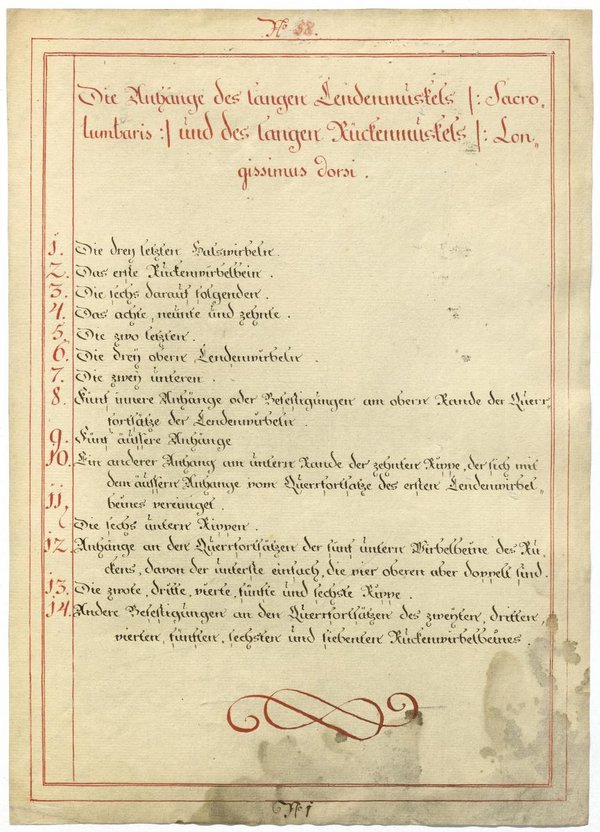 No 58.
Die Anhänge des langen Lendenmuskels /: Sacro-
lumbaris :/ und des langen Rückenmuskels /: Lon-
gissimus dorsi .
1. Die drey letzten Halswirbeln .
2. Das erste Rückenwirbelbein .
3. Die sechs darauf folgenden .
4. Das achte, neunte und zehnte .
5. Die zwo letzten .
6. Die drey obern Lendenwirbeln .
7. Die zwey unteren .
8. Fünf innere Anhänge oder Befestigungen am obern Rande der Querr-
fortsätze der Lendenwirbeln .
9. Fünf äussere Anhänge
10. Ein anderer Anhang am untern Rande der zehnten Rippe, der sich mit
dem äussern Anhange vom Querrfortsatze des ersten Lendenwirbel-
beines vereiniget .
11. Die sechs untern Rippen .
12. Anhänge an den Querrfortsätzen der fünf untern Wirbelbeine des Rü-
ckens, davon der unterste einfach, die vier oberen aber doppelt sind .
13. Die zwote, dritte, vierte, fünfte und sechste Rippe .
14. Andere Befestigungen an den Querrfortsätzen des zweyten, dritten,
vierten, fünften, sechsten und siebenten Rückenwirbelbeines .
No 1